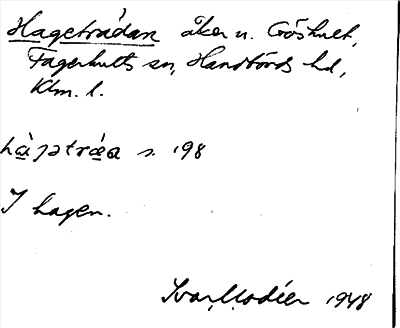 Hageträdan åker u. Cröshult,
Fagerhults sn, Handbörds hd,
Klm. l.
hàgətrǽa s. 198
I hagen.
Ivar Modéer 1948